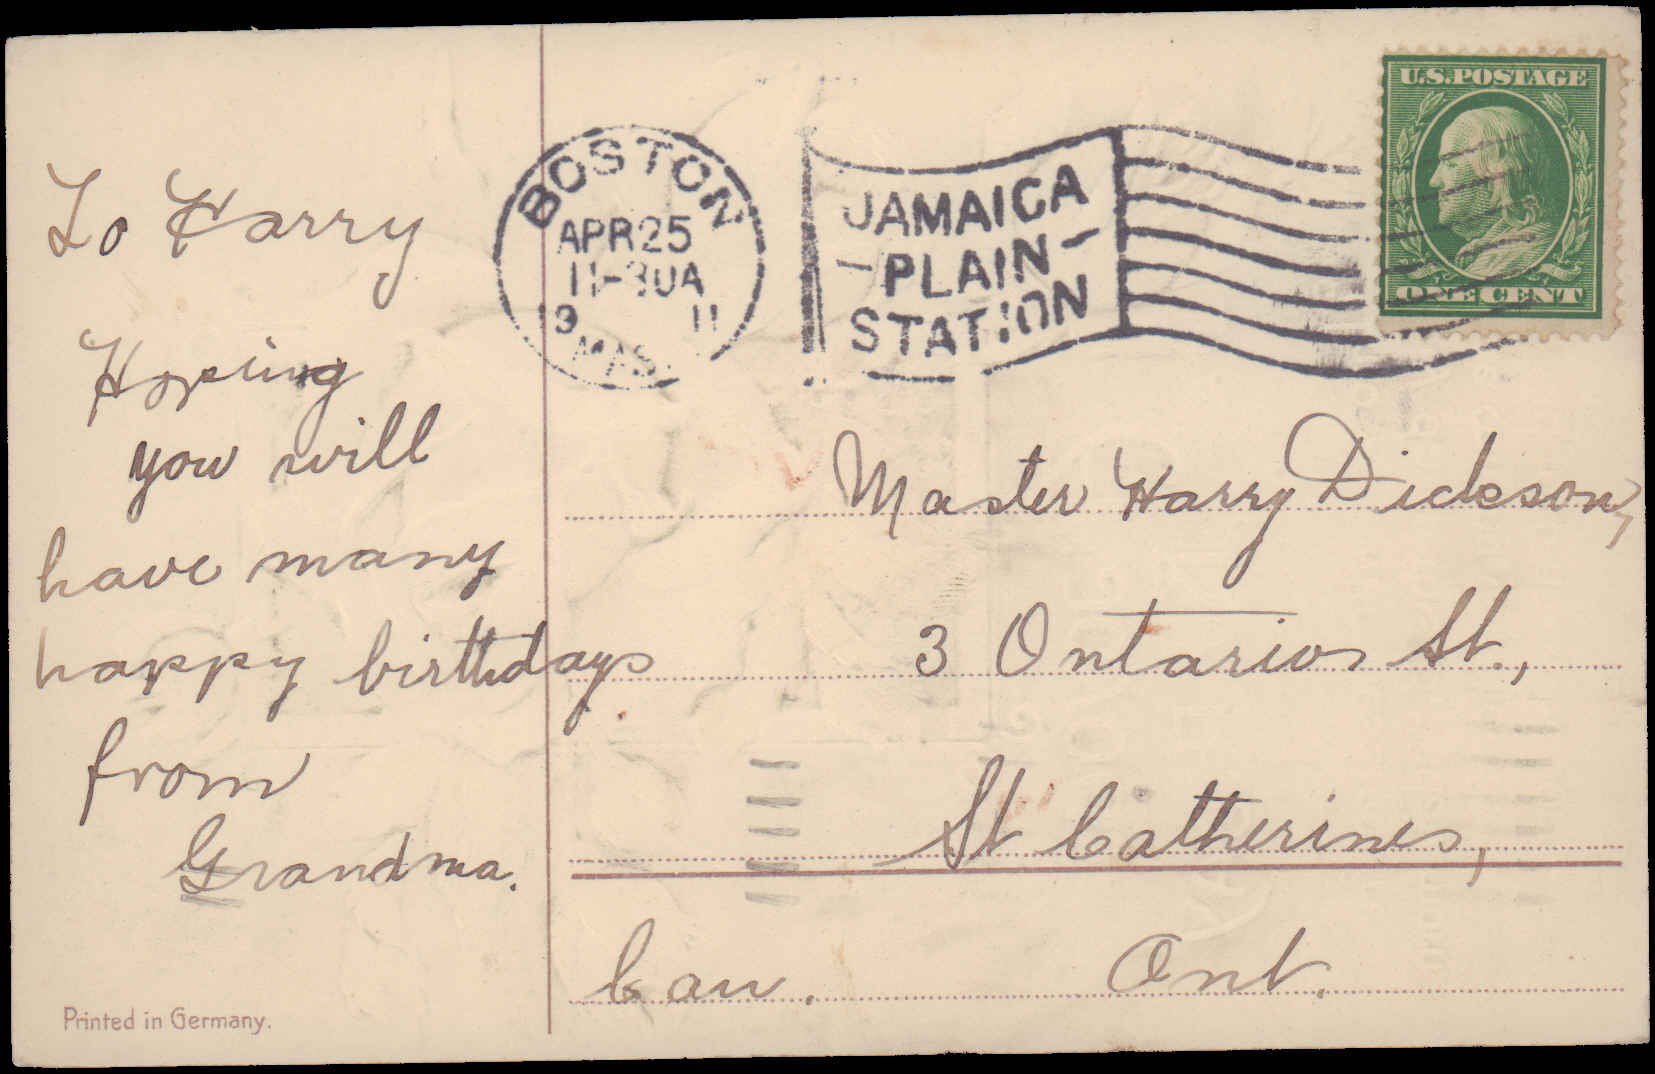 To Harry
Hoping
you will
have many
happy birthdays
from
Grandma.
Printed in Germany.
BOSTON
APR 25
11-30A
19 11
MASS.
JAMAICA
-PLAIN-
STATION
U.S. POSTAGE
ONE CENT
Master Harry Dickson,
3 Ontario St.,
St Catherines,
Can. Ont.